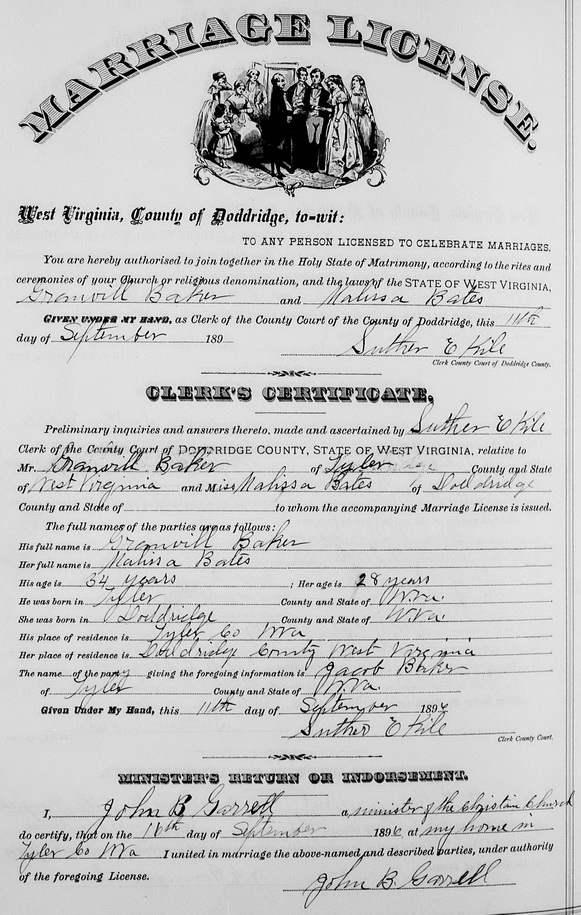 MARRIAGE LICENSE.
West Virginia, County of Doddridge, to-wit:
TO ANY PERSON LICENSED TO CELEBRATE MARRIAGES.
You are hereby authorised to join together in the Holy State of Matrimony, according to the rites and
ceremonies of your Church or religious denomination, and the laws of the STATE OF WEST VIRGINIA,
Granvill Baker and Malissa Bates
GIVEN UNDER MY HAND, as Clerk of the County Court of the County of Doddridge, this 11th
day of September 189
Suther E Kile
Clerk County Court of Doddridge County.
CLERK'S CERTIFICATE.
Preliminary inquiries and answers thereto, made and ascertained by Suther E Kile
Clerk of the County Court of DODDRIDGE COUNTY, STATE OF WEST VIRGINIA, relative to
Mr. Granvill Baker of Tyler County and State
of West Virginia and Miss Malissa Bates of Doddridge
County and State of to whom the accompanying Marriage License is issued.
The full names of the parties are as follows:
His full name is Granvill Baker
Her full name is Malissa Bates
His age is 34 years ; Her age is 28 years
He was born in Tyler County and State of W.Va.
She was born in Doddridge County and State of W.Va.
His place of residence is Tyler Co WVa
Her place of residence is Doddridge County West Virginia
The name of the party giving the foregoing information is Jacob Baker
of Tyler County and State of W.Va.
Given Under My Hand, this 11th day of September 1896
Suther E Kile
Clerk County Court.
MINISTER'S RETURN OR INDORSEMENT.
I, John B Garrett a minister of the Christian Church
do certify, that on the 16th day of September 1896, at my home in
Tyler Co WVa I united in marriage the above-named and described parties, under authority
of the foregoing License.
John B. Garrett